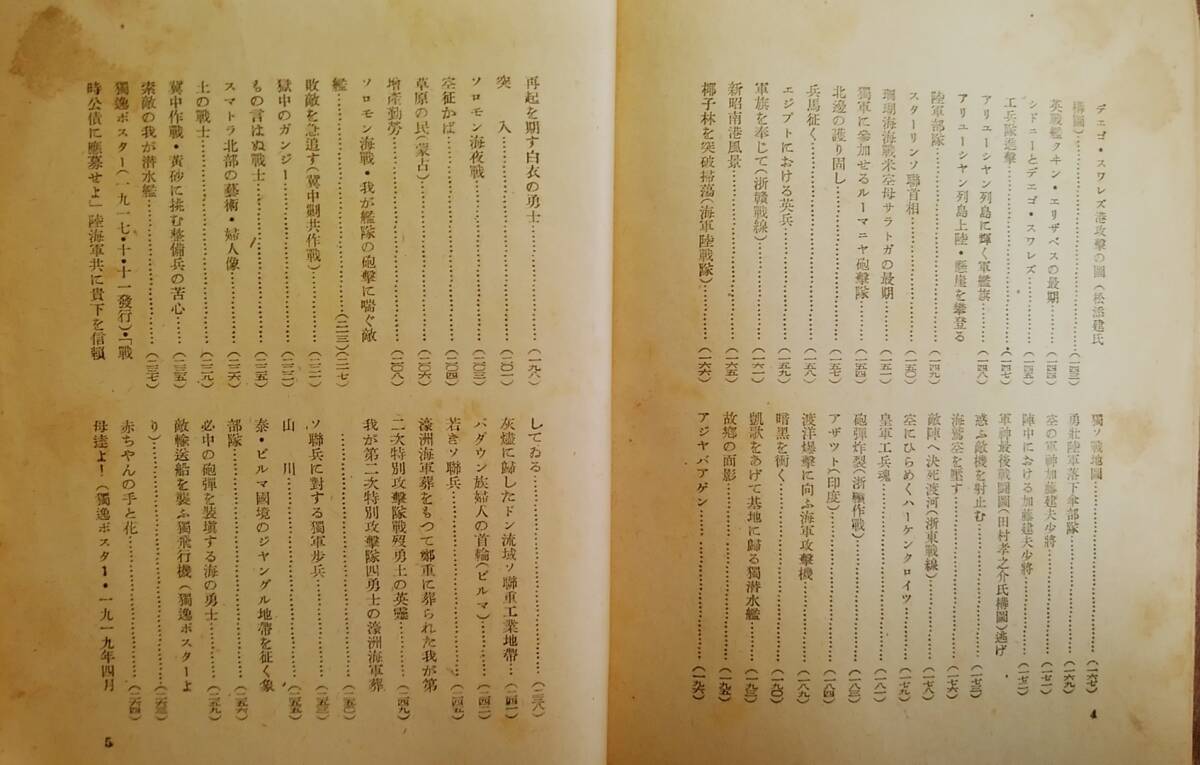 デエゴ・スワレズ港攻擊の圖(松添建氏
構圖)……(一四三)
英戰艦クヰン・エリザベスの最期……(一四四)
シドニーとデエゴ・スワレズ……(一四五)
工兵隊進擊……(一四七)
アリユーシヤン列島に輝く軍艦旗……(一四八)
アリユーシヤン列島上陸・懸崖を攀登る
陸軍部隊……(一四九)
スターリンソ聯首相……(一五〇)
珊瑚海海戰米空母サラトガの最期……(一五二)
獨軍に參加せるルーマニヤ砲擊隊……(一五四)
北邊の護り固し……(一五七)
兵馬征く……(一五八)
エジプトにおける英兵……(一五九)
軍旗を奉じて(浙贛戰線)……(一六二)
新昭南港風景……(一六五)
椰子林を突破掃蕩(海軍陸戰隊)……(一六六)
獨ソ戰地圖……(一六七)
勇壯陸軍落下傘部隊……(一六九)
空の軍神加藤建夫少將……(一七一)
陣中における加藤建夫少將……(一七二)
軍神最後戰鬪圖(田村孝之介氏構圖)逃げ
惑ふ敵機を射止む……(一七三)
海鷲空を壓す……(一七六)
敵陣へ決死渡河(浙東戰線)……(一七八)
空にひらめくハーケンクロイツ……(一七九)
皇軍工兵魂……(一八一)
砲彈炸裂(浙贛作戰)……(一八三)
アザツト印度)……(一八四)
渡洋爆擊に向ふ海軍攻擊機……(一八九)
暗黑を衝く……(一九〇)
凱歌をあげて基地に歸る獨潜水艦……(一九三)
故鄉の面影……(一九五)
アジヤバアゲン……(一九六)
4
再起を期す白衣の勇士……(一九八)
突入……(二〇一)
ソロモン海夜戰……(二〇三)
空征かば……(二〇四)
草原の民(蒙古)……(二〇六)
增產勤勞……(二〇八)
ソロモン海戰・我が艦隊の砲擊に喘ぐ敵
艦……(二一三)(二一七)
敗敵を急追す(冀中剿共作戰)……(二二一)
獄中のガンジー……(二二二)
もの言はぬ戰士……(二二五)
スマトラ北部の藝術・婦人像……(二二六)
土の戰士……(二二九)
冀中作戰・黃砂に挑む整備兵の苦心……(二三五)
索敵の我が潜水艦……(二三七)
獨逸ポスター(一九一七・十・十一發行)・「戰
時公債に應募せよ」陸海軍共に貴下を信賴
してゐる……(二三八)
灰燼に歸したドン流域ソ聯重工業地帶……(二四一)
パダウン族婦人の首輪(ビルマ)……(二四二)
若きソ聯兵……(二四五)
濠洲海軍葬をもつて鄭重に葬られた我が第
二次特別攻擊隊戰歿勇士の英靈……(二四九)
我が第二次特別攻擊隊四勇士の濠洲海軍葬
……(二五〇)
ソ聯兵に對する獨軍步兵……(二五三)
山川……(二五五)
泰・ビルマ國境のジヤングル地帶を征く象
部隊……(二五六)
必中の砲彈を裝塡する海の勇士……(二五九)
敵輸送船を襲ふ獨飛行機(獨逸ポスターよ
り)……(二六三)
赤ちやんの手と花……(二六四)
母達よ!(獨逸ポスター・一九一九年四月
5